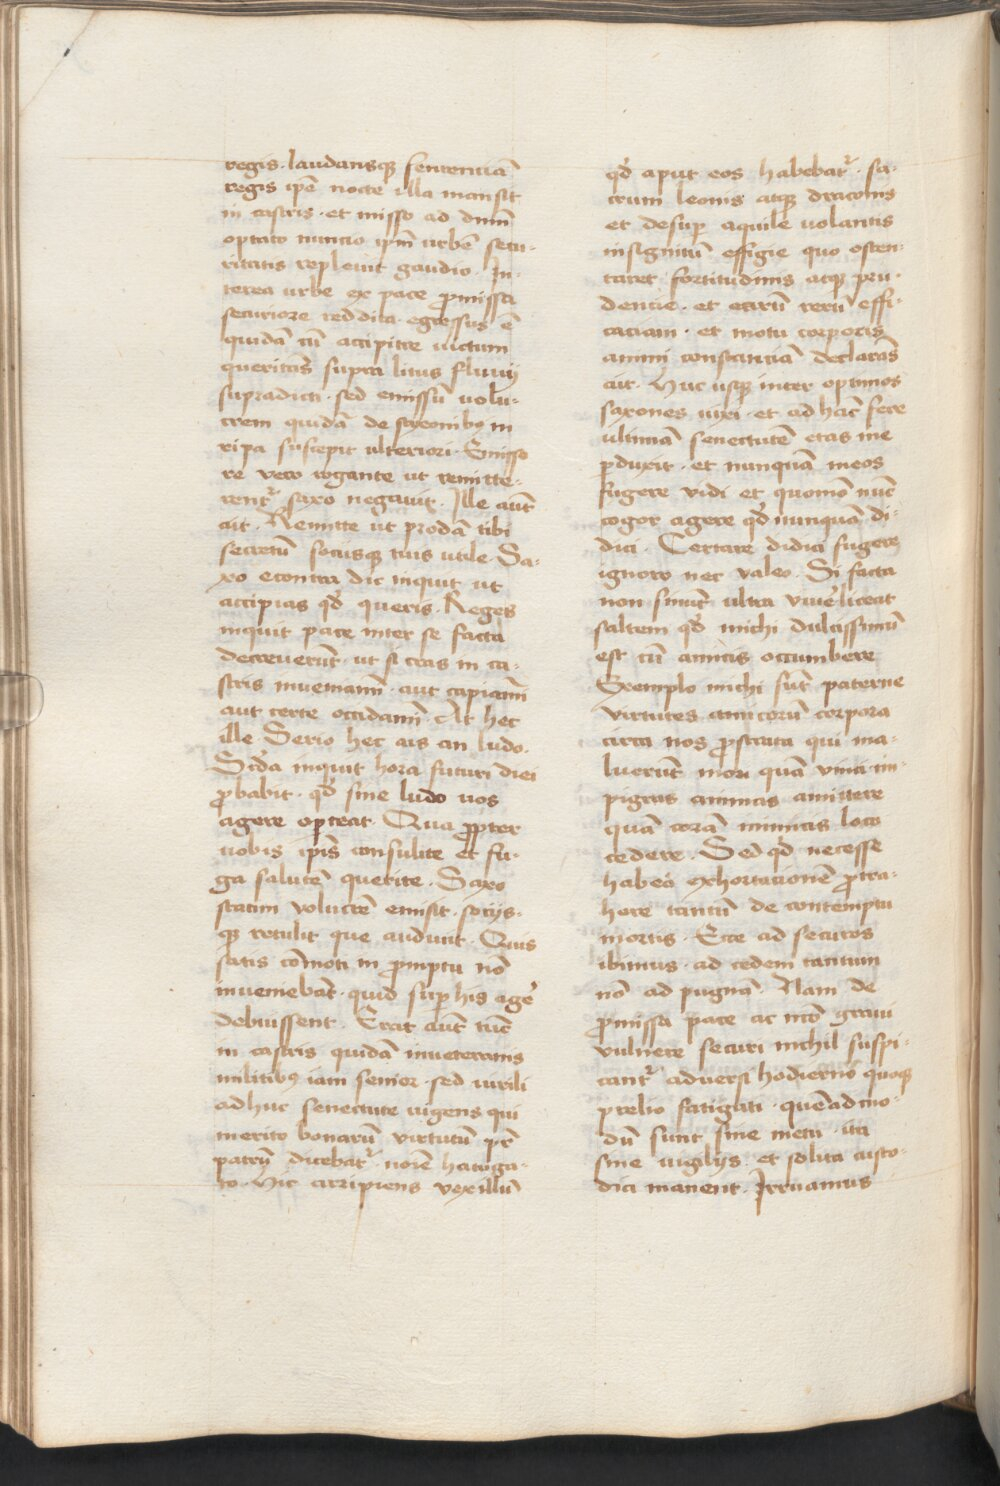 regis. laudansq; sententiā
regis ip̄e nocte illa mansit
in castris. et misso ad dnm̄
optato nuncio ip̄m urbē secu-
ritatis replevit gaudio. In-
terea urbe ex pace p̄missa
securiore reddita. egressus ē
quidā cū accipitre victum
queritās supra litus fluvij
supradicti. sed emissū volu-
crem quidā de saxonibꝫ in
ripa suscepit ulteriori. Emisso
re vero rogante ut remitte-
rentᷣ saxo negavit. Ille aut̄
ait. Remitte ut prodā tibi
secretū sociisq; tuis utile. Sa-
xo econtra dic inquit ut
accipias qd̄ queris. Reges
inquit pace inter se facta
decreverūt. ut si cras in ca-
stris inveniamī. aut capiamī
aut certe occidamī. At hec
ille. Serio hec ais an ludo.
Scd̄a inquit hora futuri diei
p̄babit. qd̄ sine ludo vos
agere oporteat. Qua p̄pter
vobis ip̄is consulite et fu-
ga salutē querite. Saxo
statim volucrē emisit. socijs-
q; retulit que audivit. Quis
satis cōmoti in p̄mptu nō
inveniebāt. quid suꝑ his age᷑
debuissent. Erat aut̄ tūc
in castris quidā inveteranis
militibꝫ iam senior. sed virili
adhuc senectute vigens qui
merito bonarū virtutū pr̄
patrū dicebatᷣ. noīe hatoga-
to. Hic arripiens vexillū
qd̄ aput eos habebatᷣ. sa-
crum leonis atq; draconis
et desuꝑ aquile volantis
insignitū effigie quo osten-
taret fortitudinis atq; pru-
dentie. et earū rerū effi-
catiam. et motu corporis
animi constantiā declarās
ait. Huc usq; inter optimos
saxones vixi. et ad hāc fere
ultimā senectutē etas me
p̄duxit. et nunquā meos
fugere vidi et quomō nūc
cogor agere qd̄ nunquā di-
dici. Certare didici fugere
ignoro nec valeo. Si facta
non sinūt ultra vive᷑ liceat
saltem qd̄ michi dulcissimū
est cū amicis occumbere
Exemplo michi sūt paterne
virtutes amicorū corpora
circa nos p̄strata qui ma-
luerūt mori quā vinci im-
pigras animas amittere
quā corā inimicis loco
cedere. Sed qd̄ necesse
habeo exhortationē p̄tra-
here tantū de contemptu
mortis. Ecce ad securos
ibimus. ad cedem tantum
nō ad pugnā. Nam de
p̄missa pace ac nr̄o gravi
vulnere securi nichil suspi-
cantᷣ adversi hodierno quoq;
prelio fatigati. quēadmo-
dū sunt sine metu. ita
sine vigilijs et solita custo-
dia manent. Irruamus